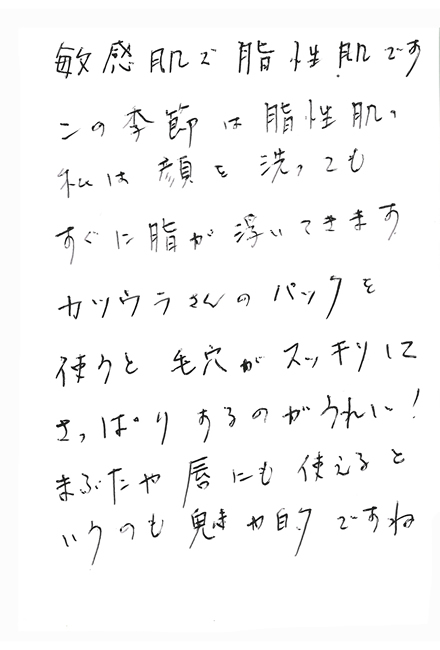 敏感肌で脂性肌です
この季節は脂性肌、
私は顔を洗っても
すぐに脂が浮いてきます
カツウラさんのパックを
使うと毛穴がスッキリして
さっぱりするのがうれしい!
まぶたや唇にも使えると
いうのも魅力的ですね